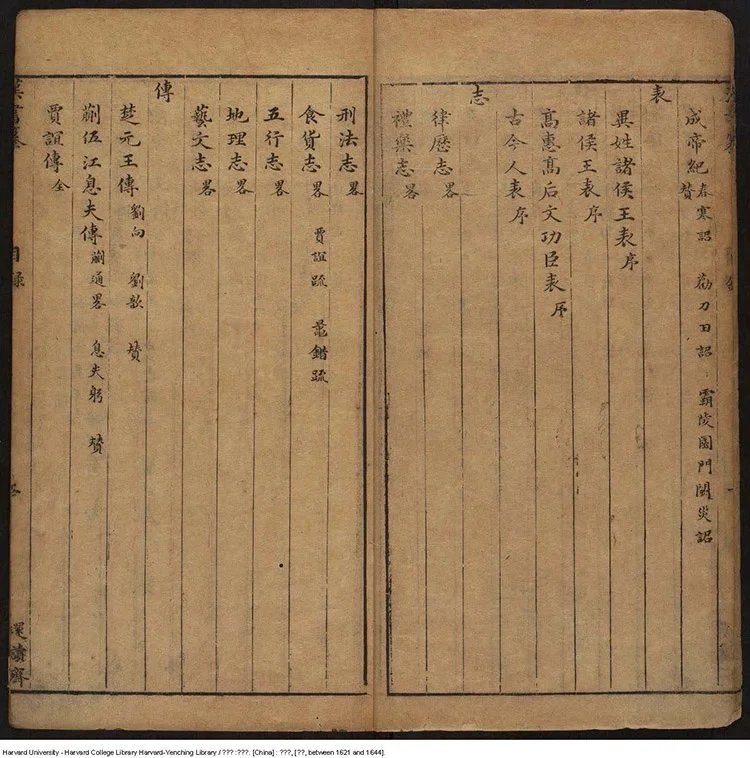 成帝紀 春寒詔 勸力田詔 霸陵園門闕災詔 贊
表
異姓諸侯王表序
諸侯王表序
高惠高后文功臣表序
古今人表序
志
律歷志畧
禮樂志畧
刑法志畧
食貨志畧 賈誼疏 鼂錯疏
五行志畧
地理志畧
藝文志畧
傳
楚元王傳 劉向 劉歆 贊
蒯伍江息夫傳 蒯通畧 息夫躬 贊
賈誼傳全
目錄
Harvard University - Harvard College Library Harvard-Yenching Library / ??? :???. [China] : ???, [??, between 1621 and 1644].